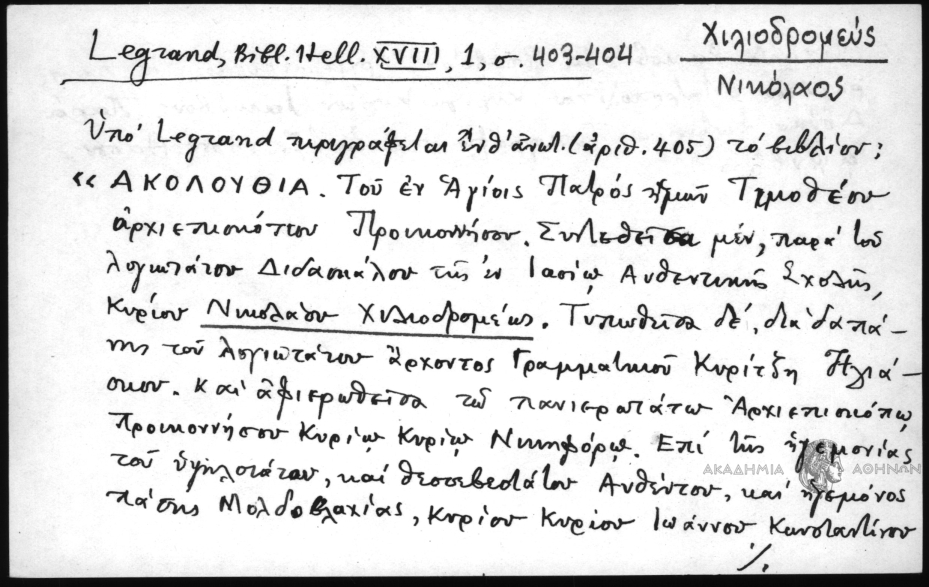 Legrand, Bibl. Hell. XVIII, 1, σ. 403-404
Χιλιοδρομεύς
Νικόλαος
Ὑπό Legrand περιγράφεται ἔνθ' ἀνωτ. (ἀριθ. 405) τό βιβλίον:
«ΑΚΟΛΟΥΘΙΑ. Τοῦ ἐν Ἁγίοις Πατρός ἡμῶν Τιμοθέου
ἀρχιεπισκόπου Προικοννήσου. Συντεθεῖσα μέν, παρά τοῦ
λογιωτάτου Διδασκάλου τῆς ἐν Ιασίῳ Αυθεντικῆς Σχολῆς,
Κυρίου Νικολάου Χιλιοδρομέως. Τυπωθεῖσα δέ, διά δαπά-
νης τοῦ λογιωτάτου ἄρχοντος Γραμματικοῦ Κυρίτζη Ἠλιά-
σκου. Καί ἀφιερωθεῖσα τῷ πανιερωτάτῳ Ἀρχιεπισκόπῳ
Προικοννήσου Κυρίῳ Κυρίῳ Νικηφόρῳ. Επί τῆς ἡγεμονίας
ΑΚΑΔΗΜΙΑ ΑΘΗΝΩΝ
τοῦ ὑψηλοτάτου, καί θεοσεβεστάτου Αυθέντου, καί ἡγεμόνος
πάσης Μολδοβλαχίας, Κυρίου Κυρίου Ιωάννου Κωνσταντίνου
./.